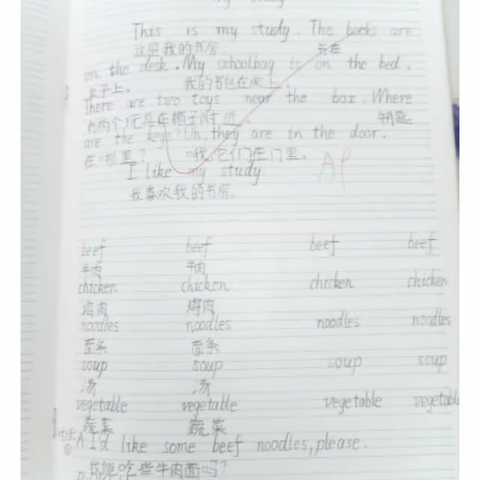 my study
This is my study. The books are
这是我的书房。 书在
on the desk. My schoolbag is on the bed.
桌子上。 我的书包在床上。
There are two toys near the box. Where
有两个玩具在箱子附近。 钥匙
are the keys? Oh, they are in the door.
在哪里? 哦,它们在门里。
I like my study.
我喜欢我的书房。
beef beef beef beef
牛肉 牛肉
chicken chicken chicken chicken
鸡肉 鸡肉
noodles noodles noodles noodles
面条 面条
soup soup soup soup
汤 汤
vegetable vegetable vegetable vegetable
蔬菜 蔬菜
I'd like some beef noodles, please.
我能吃些牛肉面吗?